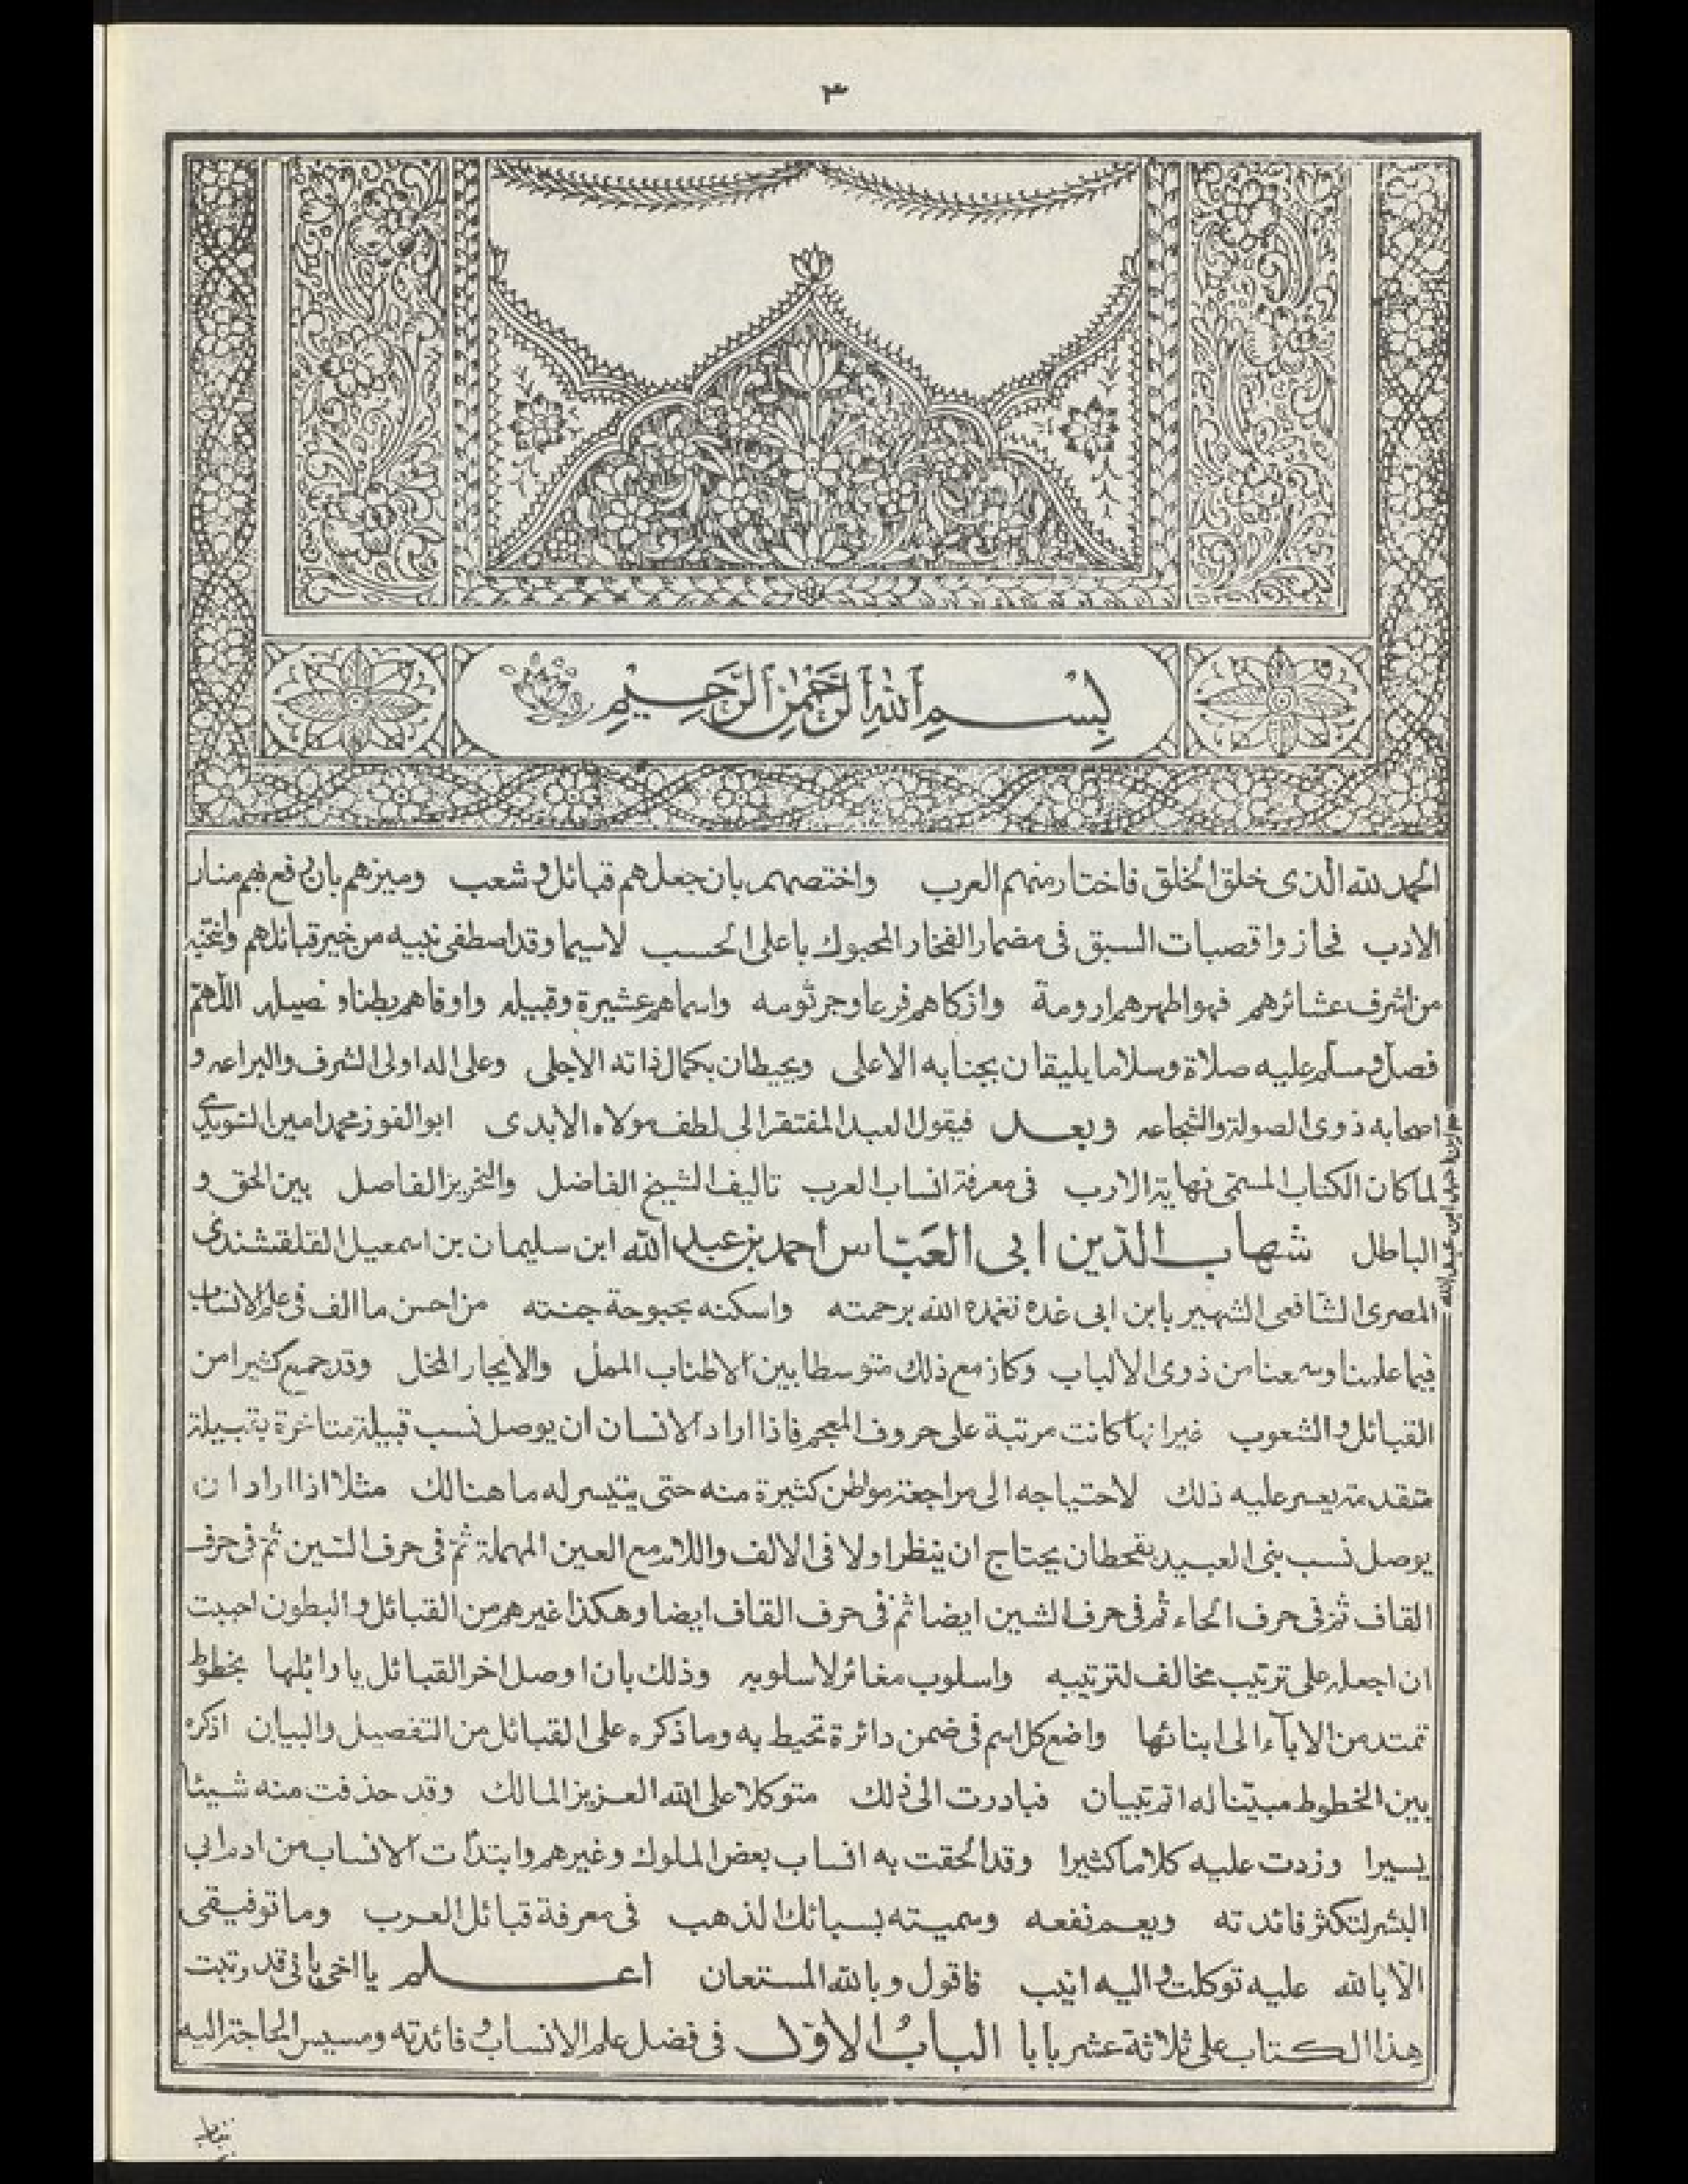 ٣
بِسْمِ ٱللّٰهِ ٱلرَّحْمٰنِ ٱلرَّحِيمِ
الحمد لله الذى خلق الخلق فاختار منهم العرب واختصهم بان جعلهم قبائل وشعب وميزهم بان رفع لهم منار
الادب فحازوا قصبات السبق فى مضمار الفخار المحبوك باعلى الحسب لاسيما وقد اصطفى نبيه من خير قبائلهم وانتخبه
من اشرف عشائرهم فهو اطهرهم ارومة وازكاهم فرعا وجرثومه واسماهم عشيرة وقبيله واوفاهم بطنا وفصيله اللّهمّ
فصل وسلم عليه صلاة وسلاما يليقان بجنابه الاعلى ويحيطان بكمال ذاته الاجلى وعلى اله اولى الشرف والبراعه و
اصحابه ذوى الصولة والشجاعه وبعد فيقول العبد المفتقر الى لطف مولاه الابدى ابو الفوز محمد امين السويدى
لما كان الكتاب المسمّى نهاية الارب فى معرفة انساب العرب تاليف الشيخ الفاضل والنحرير الفاصل بين الحق و
الباطل شهاب الدّين ابى العَبّاس أحمد بن عبد الله ابن سليمان بن اسمعيل القلقشندى
المصرى الشافعى الشهير بابن ابى غده تغمده الله برحمته واسكنه بحبوحة جنته من احسن ما الف فى علم الانساب
فيما علمنا وسمعنا من ذوى الالباب وكان مع ذلك متوسطا بين الاطناب الممل والايجار المخل وقد جمع كثيرا من
القبائل والشعوب غير انها كانت مرتبة على حروف المعجم فاذا اراد الانسان ان يوصل نسب قبيلة متاخرة بقبيلة
متقدمة يعسر عليه ذلك لاحتياجه الى مراجعة مواطن كثيرة منه حتى يتيسر له ما هنالك مثلا اذا اراد ان
يوصل نسب بنى العبيد بقحطان يحتاج ان ينظر اولا فى الالف واللام مع العين المهملة ثمّ فى حرف السين ثمّ فى حرف
القاف ثم فى حرف الحاء ثم فى حرف الشين ايضا ثم فى حرف القاف ايضا وهكذا غيرهم من القبائل والبطون احببت
ان اجعله على ترتيب مخالف لترتيبه واسلوب مغائر لاسلوبه وذلك بان اوصل اخر القبائل باوائلها بخطوط
تمتد من الاباء الى ابنائها واضع كل اسم فى ضمن دائرة تحيط به وما ذكره على القبائل من التفصيل والبيان اذكره
بين الخطوط مبيّنا له اتم تبيان فبادرت الى ذلك متوكلا على الله العزيز المالك وقد حذفت منه شيئا
يسيرا وزدت عليه كلاما كثيرا وقد الحقت به انساب بعض الملوك وغيرهم وابتدأت الانساب من ادم ابى
البشر لتكثر فائدته ويعم نفعه وسميته بسبائك الذهب فى معرفة قبائل العرب وما توفيقى
الا بالله عليه توكلت واليه انيب فاقول وبالله المستعان اعلم يا اخى بانى قد رتبت
هذا الكتاب على ثلاثة عشر بابا البابُ الاوّل فى فضل علم الانساب وفائدته ومسيس الحاجة اليه